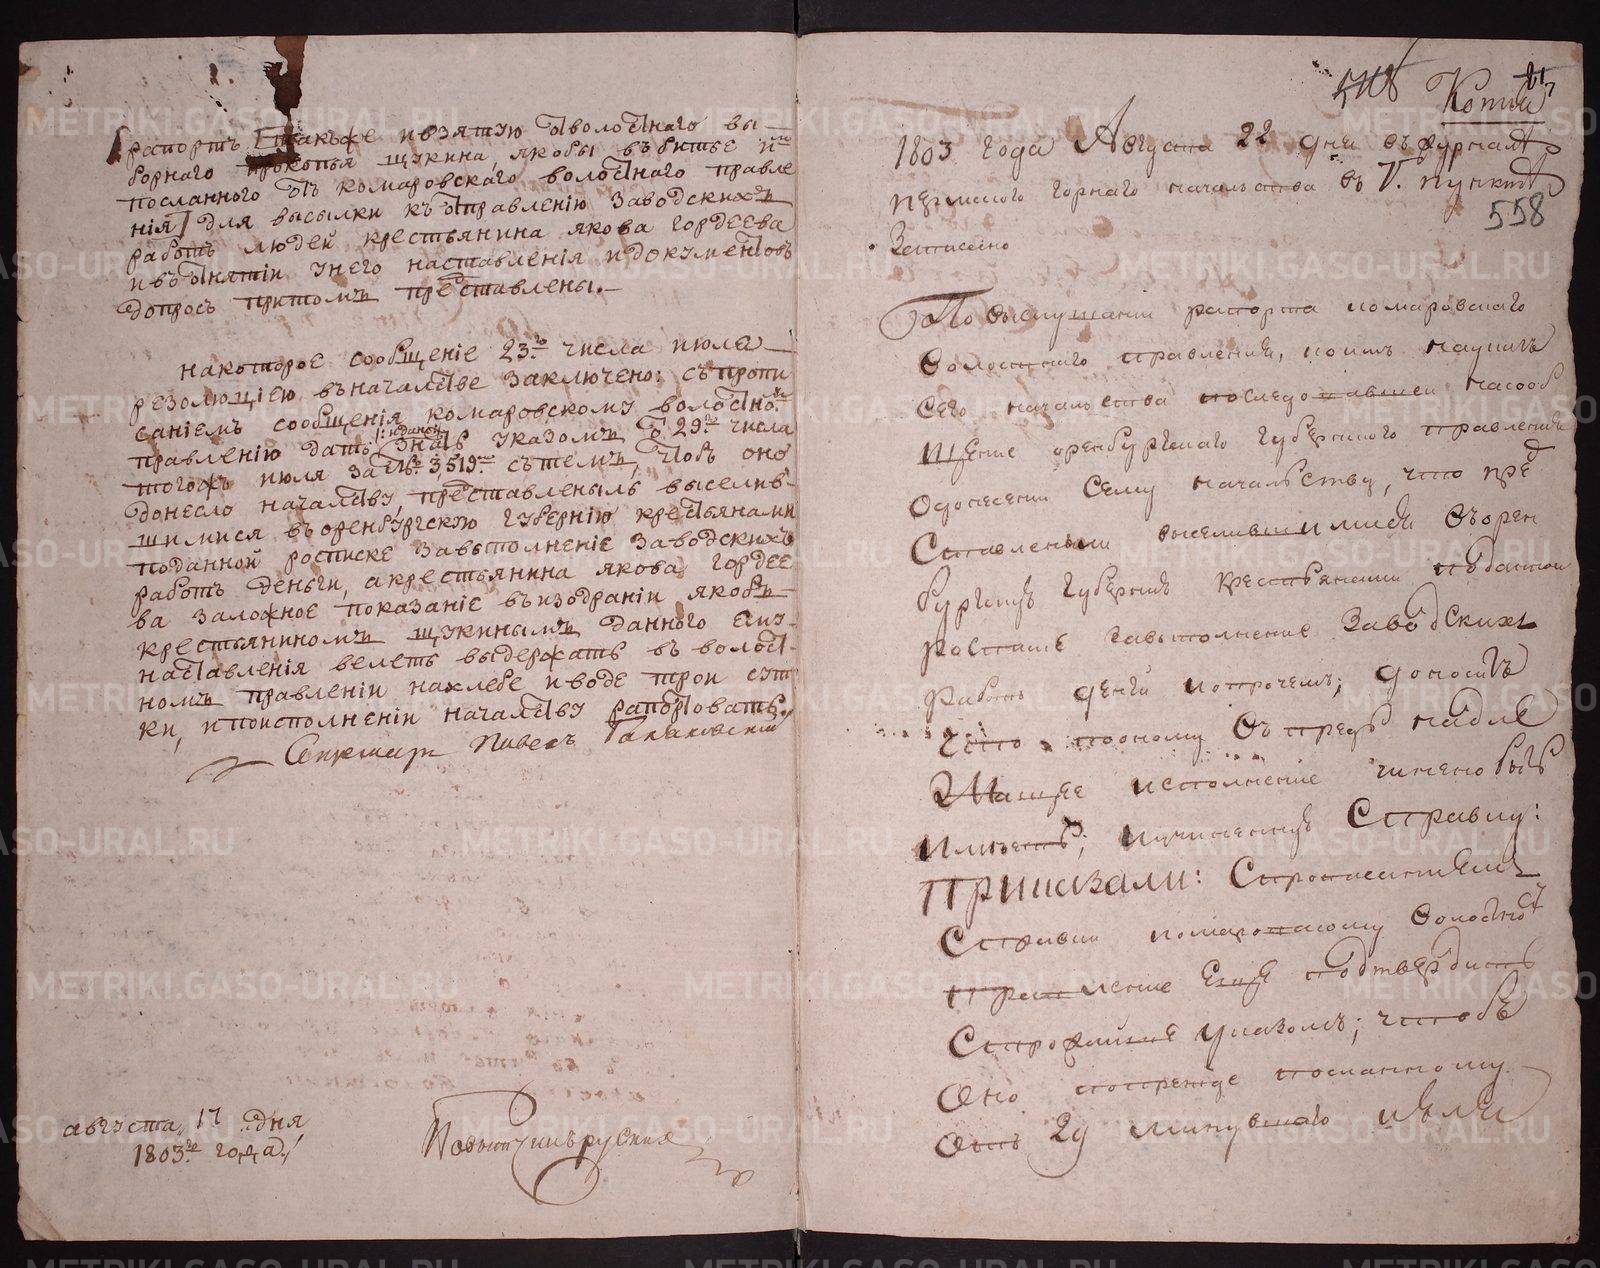 рапортъ [такъже ивзятую отволостнаго вы
борнаго прокопья щукина, якобы въбитье имъ
посланного отъ комаровскаго волостнаго правле
нія] для высылки къ отправленію заводскихъ
работъ людей крестьянина якова гордеева
ивъотнятіи унего наставленія идокументовъ
допросъ притомъ преставлены.—
накоторое сообщеніе 23го числа июля
резолюциею въначалстве заключено: съпропи
саніемъ сообщенія комаровскому волостному
правленію дать /: иданъ :/ указомъ от 29го числа
тогожъ июля за №. 3,519м съ темъ, чтобъ оно
донесло началству, преставленыль выселив
шимися въоренбургскую губернію крестьянами
поданной росписке завыполненіе заводскихъ
работъ деньги, акрестьянина якова гордее
ва заложное показаніе въизодраніи якобы
крестьяниномъ щукинымъ данного ему
наставленія велеть выдержать въ волост
номъ правленіи нахлебе иводе трои сут
ки, ипоисполненіи началству рапортовать.
Секретарь Павелъ
августа 17 дня
1803го года
Повытчикъ
Копия
1803 года Августа 22 дня въ журналѣ
пермского горнаго начальства въ V. пунктѣ
558
Записано
По выслушании рапорта комаровскаго
волостнаго правления, коимъ на указъ
сего начальства последовавшей насооб
щение оренбургскаго губернскаго правления
одонесении сему начальству, что пред
ставленыли выселившимися въорен
бургскую губернию крестьянами поданной
росписке завыполнение заводскихъ
работъ денги ипротчемъ; доноситъ
что поономому въ предь надле
жащее исполнение чинено быть
имѣетъ; иучиненную справку:
Приказали: Спрописаниемъ
справки комаровскому волостному
правление еще подтвердить
строжайше указомъ; чтобъ
оно попрежде посланному
отъ 29 минувшаго июля